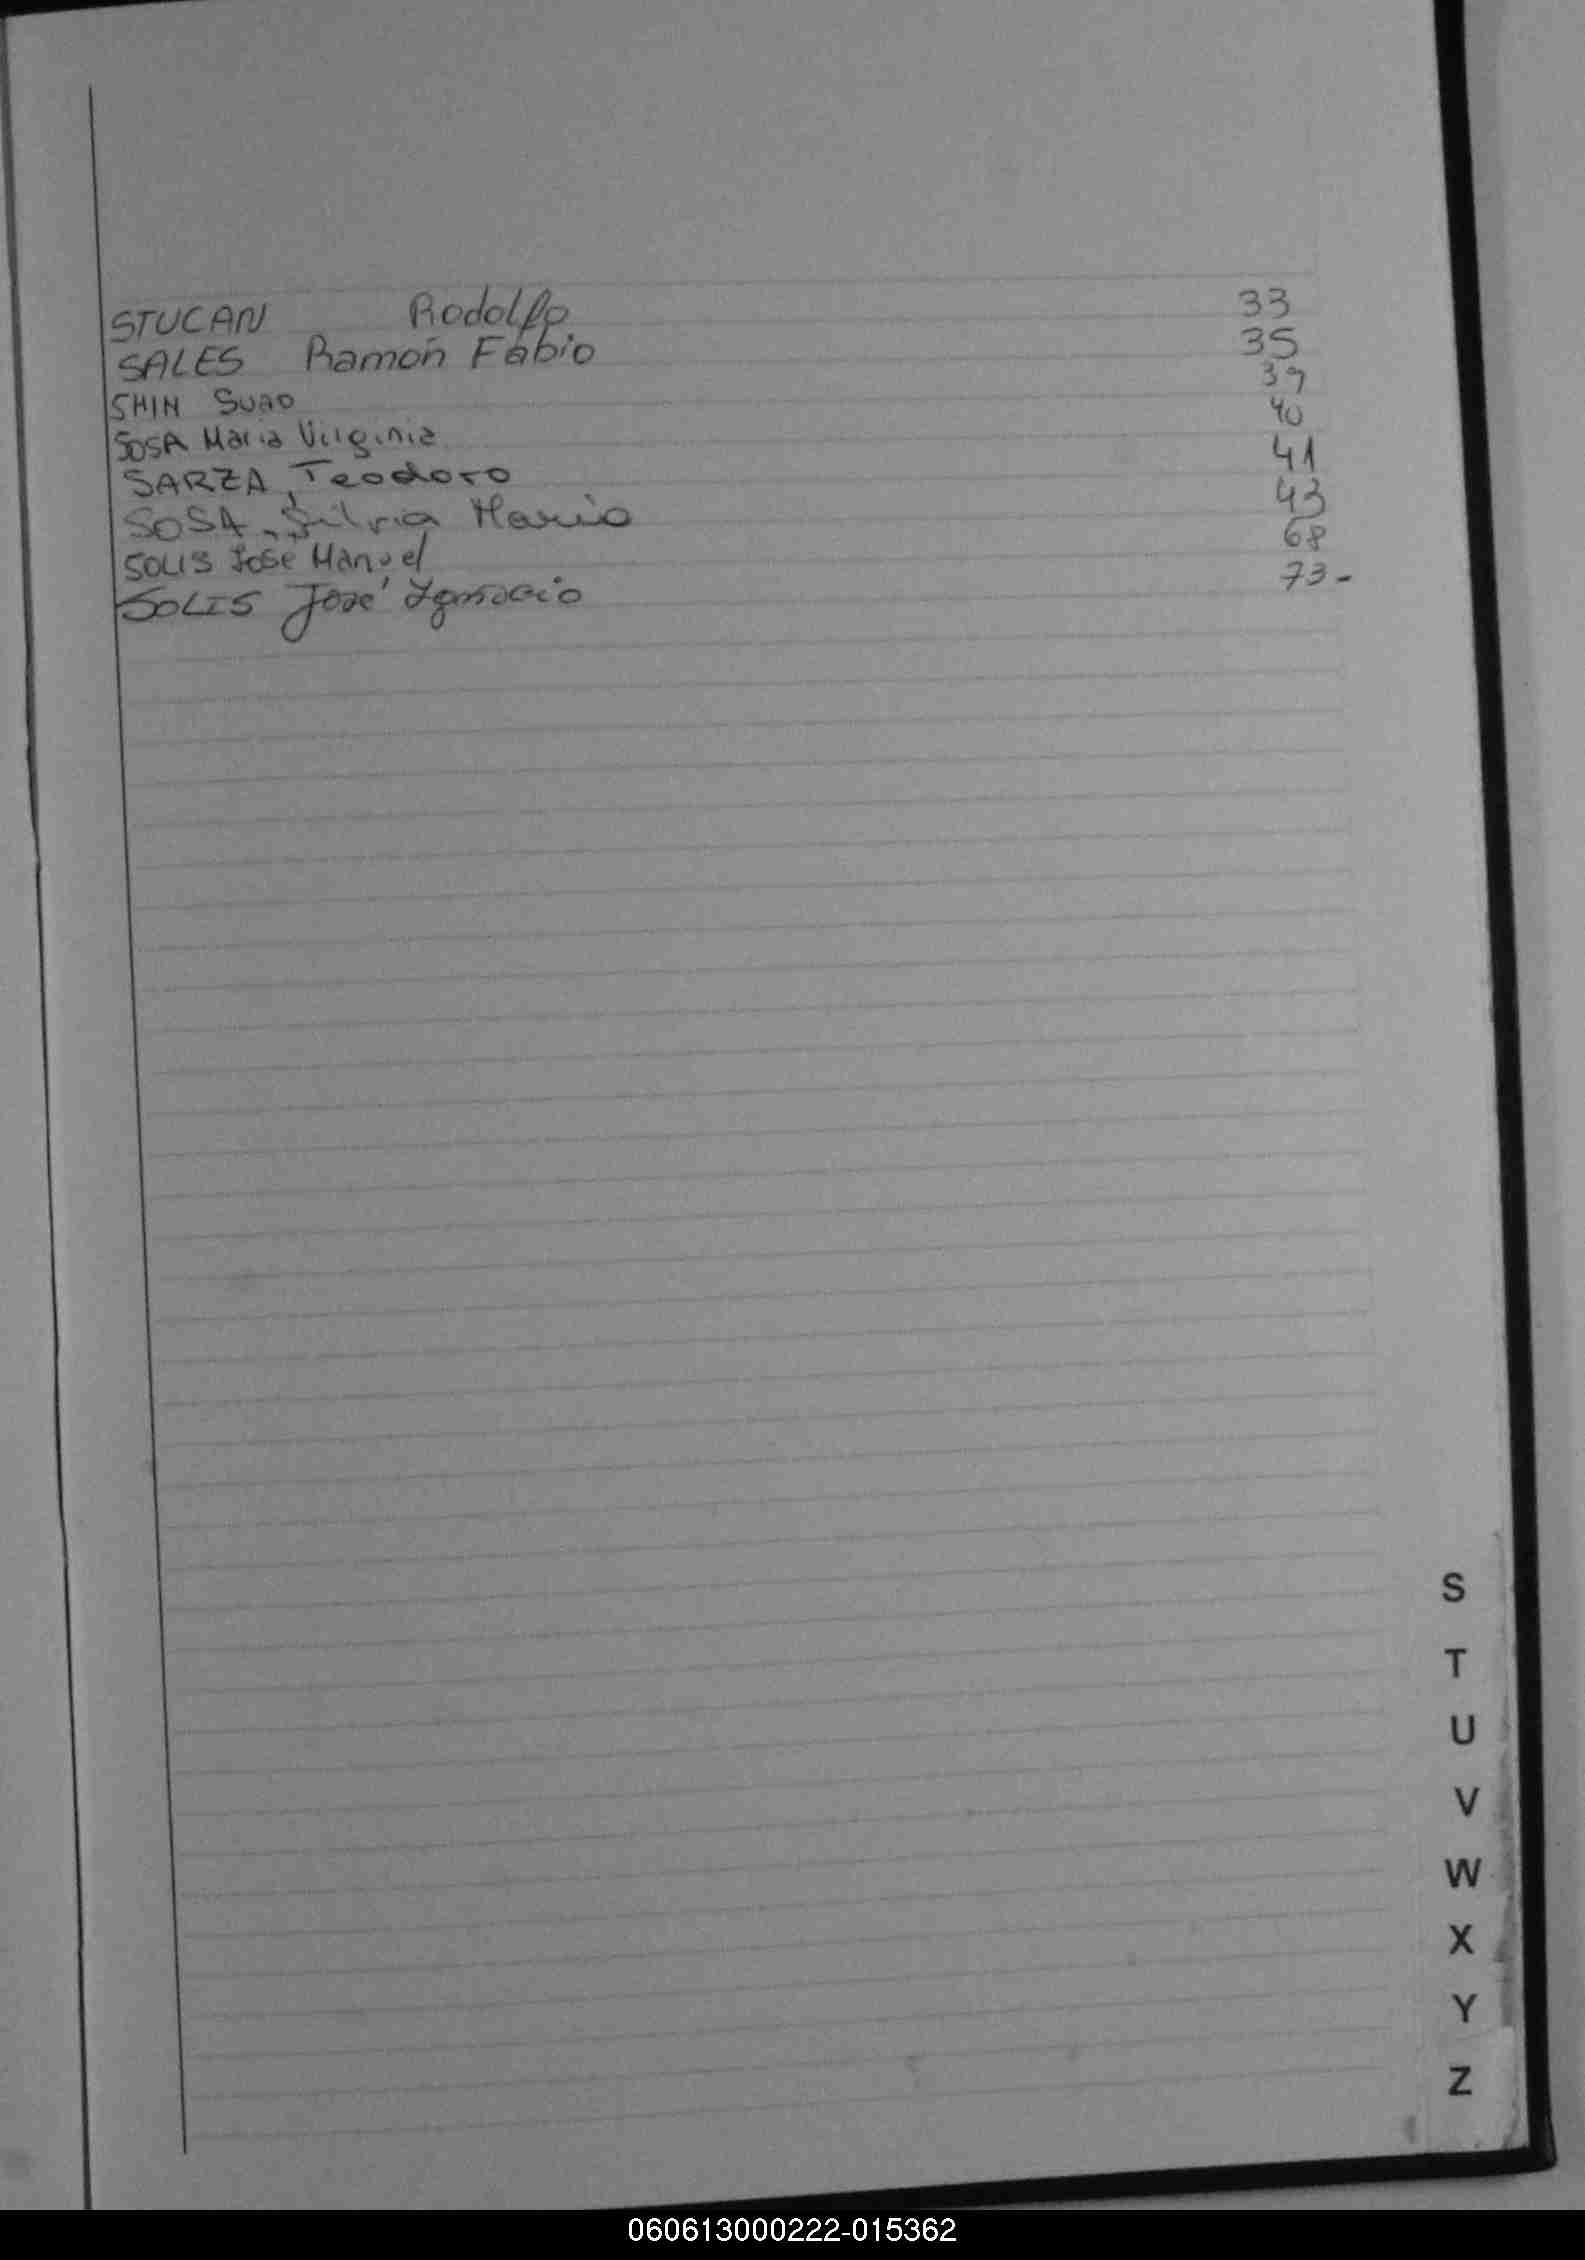 STUCAN Rodolfo 33
SALES Ramón Fabio 35
SHIN SUAO 39
SOSA Maria Virginia 40
SARZA, Teodoro 41
SOSA, Silvia Mario 43
SOLIS José Manuel 68
SOLIS José Ignacio 73-
S
T
U
V
W
X
Y
Z
060613000222-015362